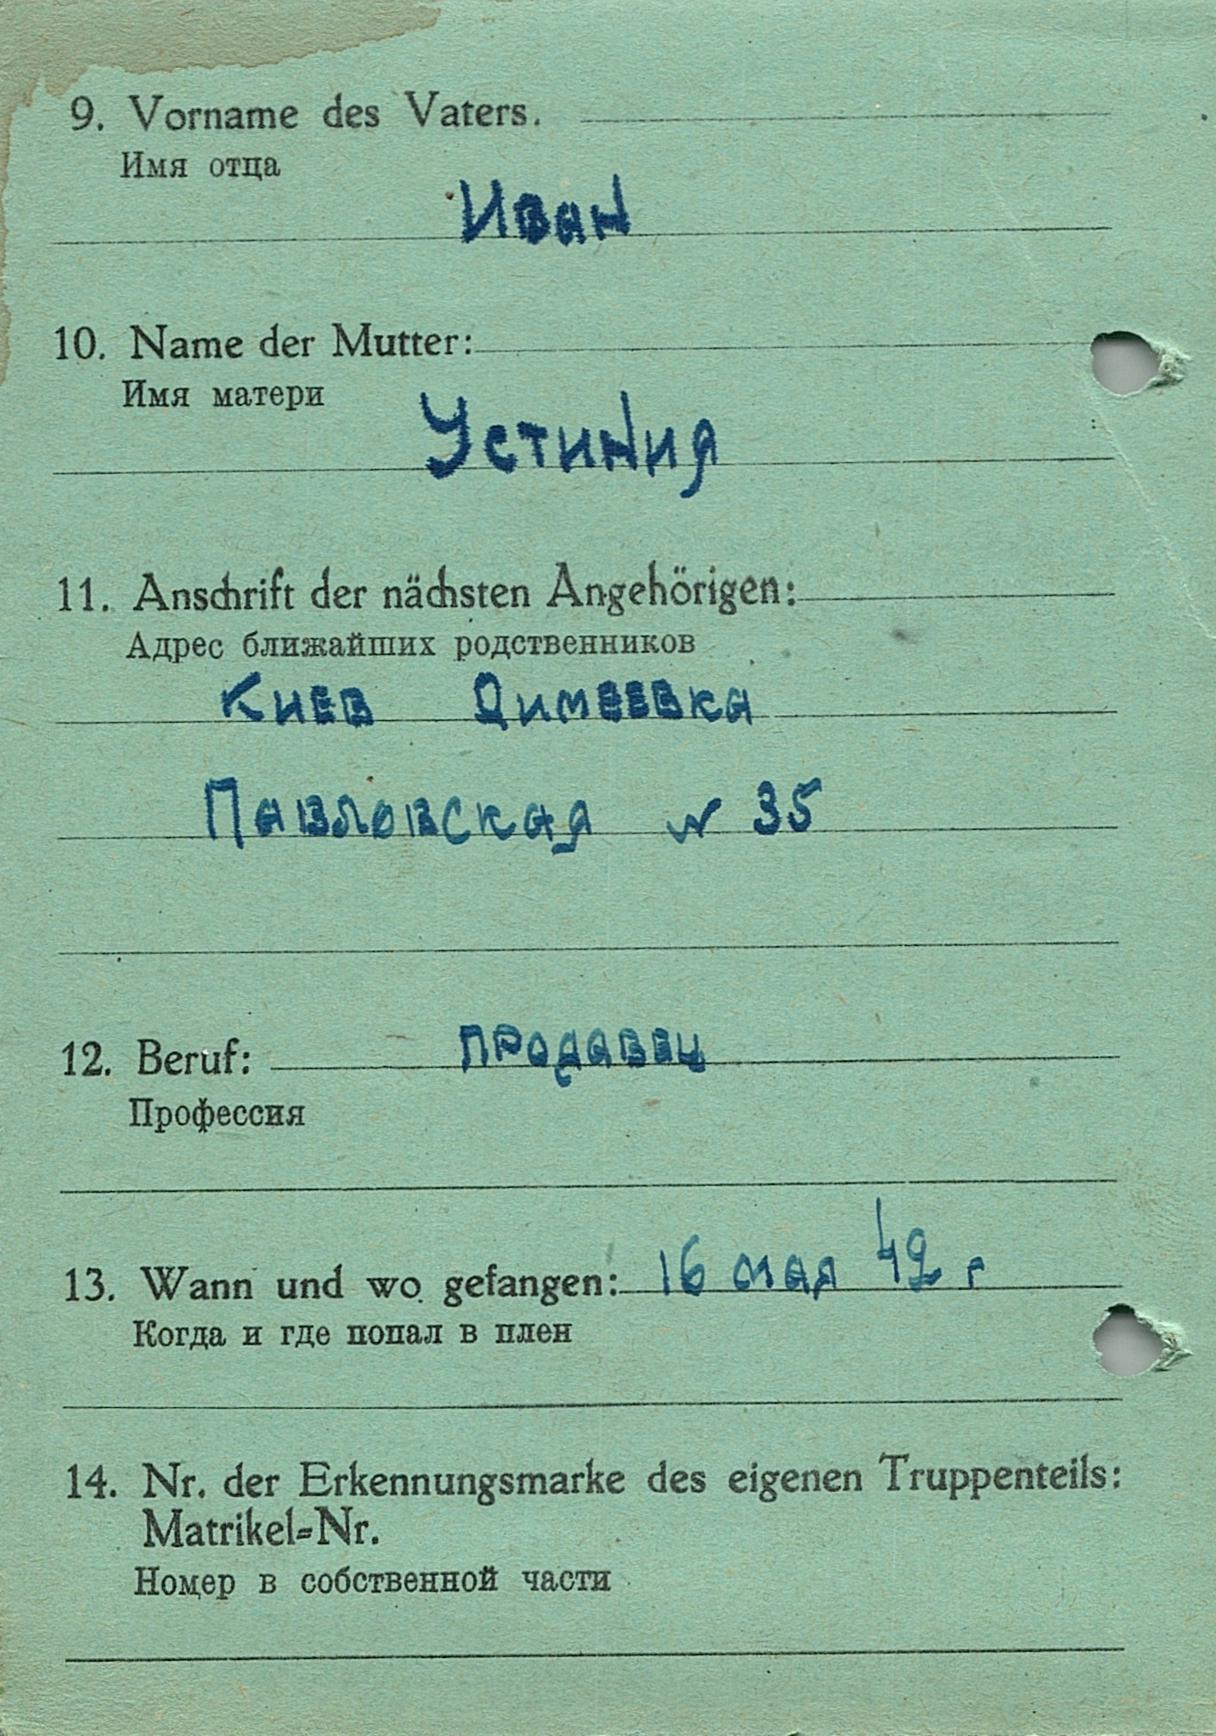 9. Vorname des Vaters.
Имя отца
Иван
10. Name der Mutter:
Имя матери
Устиния
11. Anschrift der nächsten Angehörigen:
Адрес ближайших родственников
Киев Димеевка
Павловская № 35
12. Beruf: продавец
Профессия
13. Wann und wo gefangen: 16 мая 42 г
Когда и где попал в плен
14. Nr. der Erkennungsmarke des eigenen Truppenteils:
Matrikel-Nr.
Номер в собственной части